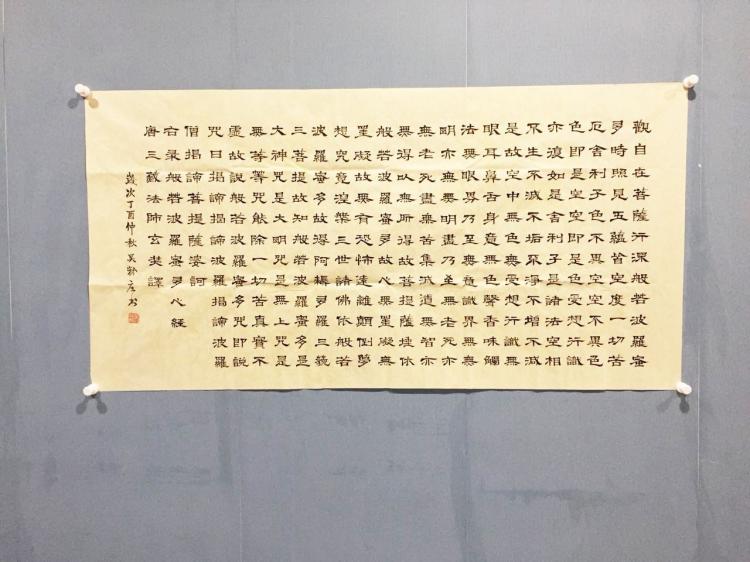 觀自在菩薩行深般若波羅蜜
多時照見五蘊皆空度一切苦
厄舍利子色不異空空不異色
色即是空空即是色受想行識
亦復如是舍利子是諸法空相
不生不滅不垢不淨不增不減
是故空中無色無受想行識無
眼耳鼻舌身意無色聲香味觸
法無眼界乃至無意識界無無
明亦無無明盡乃至無老死亦
無老死盡無苦集滅道無智亦
無得以無所得故菩提薩埵依
般若波羅蜜多故心無罣礙無
罣礙故無有恐怖遠離顛倒夢
想究竟涅槃三世諸佛依般若
波羅蜜多故得阿耨多羅三藐
三菩提故知般若波羅蜜多是
大神咒是大明咒是無上咒是
無等等咒能除一切苦真實不
虛故說般若波羅蜜多咒即說
咒曰揭諦揭諦波羅揭諦波羅
僧揭諦菩提薩婆訶
右录般若波羅蜜多心經
唐三藏法師玄奘譯
歲次丁酉仲秋